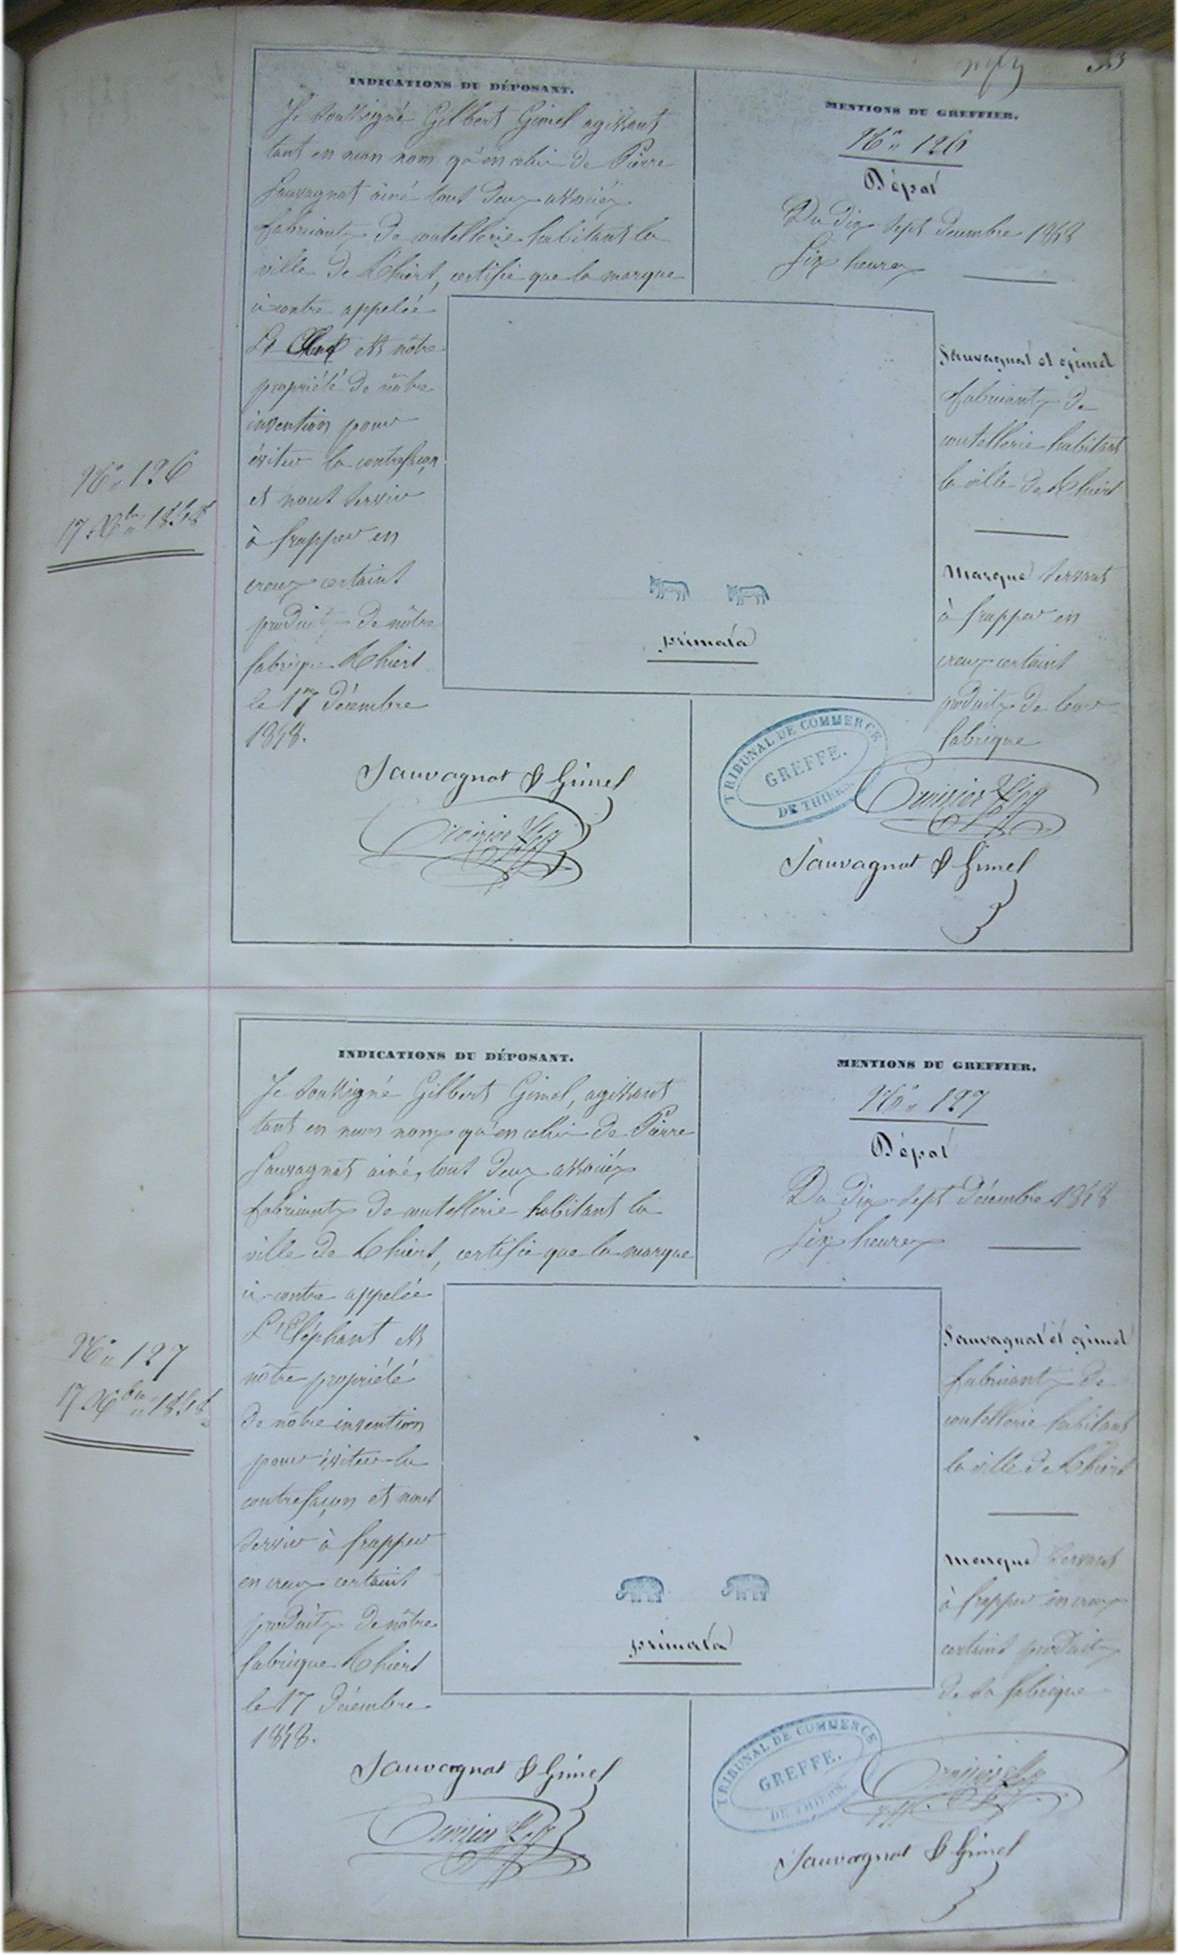 53
INDICATIONS DU DÉPOSANT.
Je soussigné Gilbert Gimel agissant
tant en mon nom qu'en celui de Pierre
Sauvagnat ainé tous deux associés
fabricants de coutellerie habitant la
ville de Thiers, certifie que la marque
ci contre appelée
Le est nôtre
propriété de nôtre
invention pour
éviter la contrefaçon
et nous servir
à frapper en
creux certains
produits de nôtre
fabrique Thiers
le 17 Décembre
1858.
Sauvagnat & Gimel
MENTIONS DU GREFFIER.
No 126
Dépot
Du dix sept décembre 1858
Six heures
Sauvagnat et gimel
fabricants de
coutellerie habitant
la ville de Thiers
Marque servant
à frapper en
creux certains
produits de leur
fabrique
primata
TRIBUNAL DE COMMERCE
GREFFE.
DE THIERS
Sauvagnat & Gimel
No 126
17 Xbre 1858
INDICATIONS DU DÉPOSANT.
Je soussigné Gilbert Gimel, agissant
tant en mon nom qu'en celui de Pierre
Sauvagnat ainé, tous deux associés
fabricants de coutellerie habitant la
ville de Thiers, certifie que la marque
ci-contre appelée
L'Eléphant est
nôtre propriété
de nôtre invention
pour éviter la
contrefaçon et nous
servir à frapper
en creux certains
produits de nôtre
fabrique Thiers
le 17 décembre
1858.
Sauvagnat & Gimel
MENTIONS DU GREFFIER.
No 127
Dépot
Du dix-sept Décembre 1858
Six heures
Sauvagnat et gimel
fabricants de
coutellerie habitant
la ville de Thiers
marque servant
à frapper en creux
certains produits
de sa fabrique
primata
TRIBUNAL DE COMMERCE
GREFFE.
DE THIERS.
Sauvagnat & Gimel
No 127
17 Xbre 1858